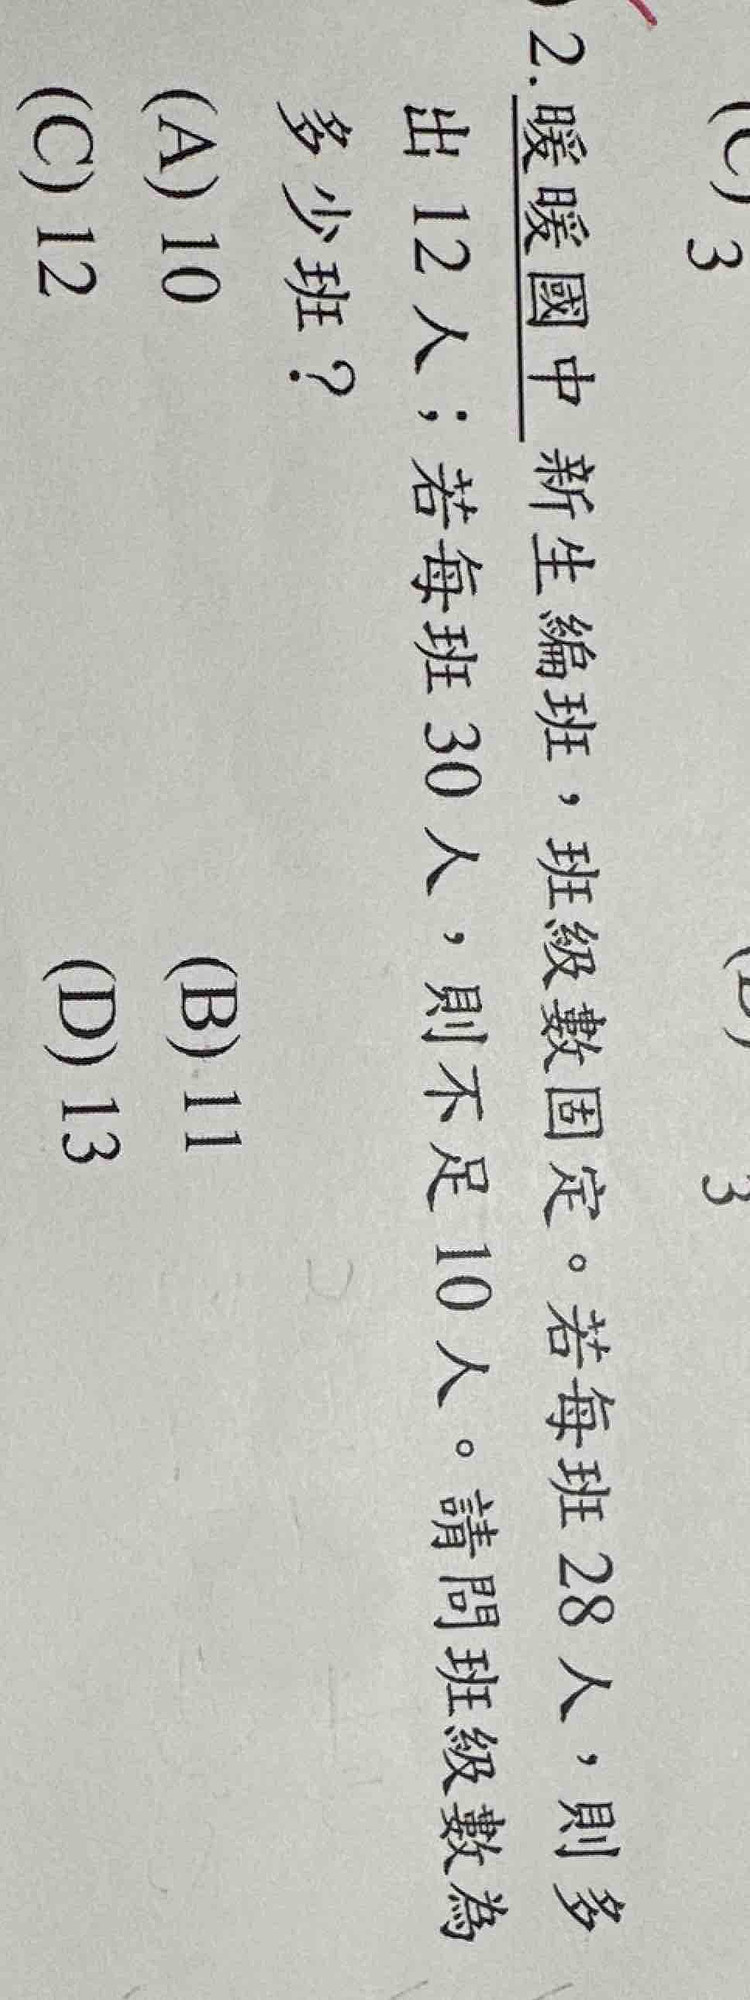 (C) 3
3
2.暖暖國中 新生編班，班級數固定。若每班 28 人，則多
出 12 人；若每班 30 人，則不足 10 人。請問班級數為
多少班？
(A) 10 (B) 11
(C) 12 (D) 13